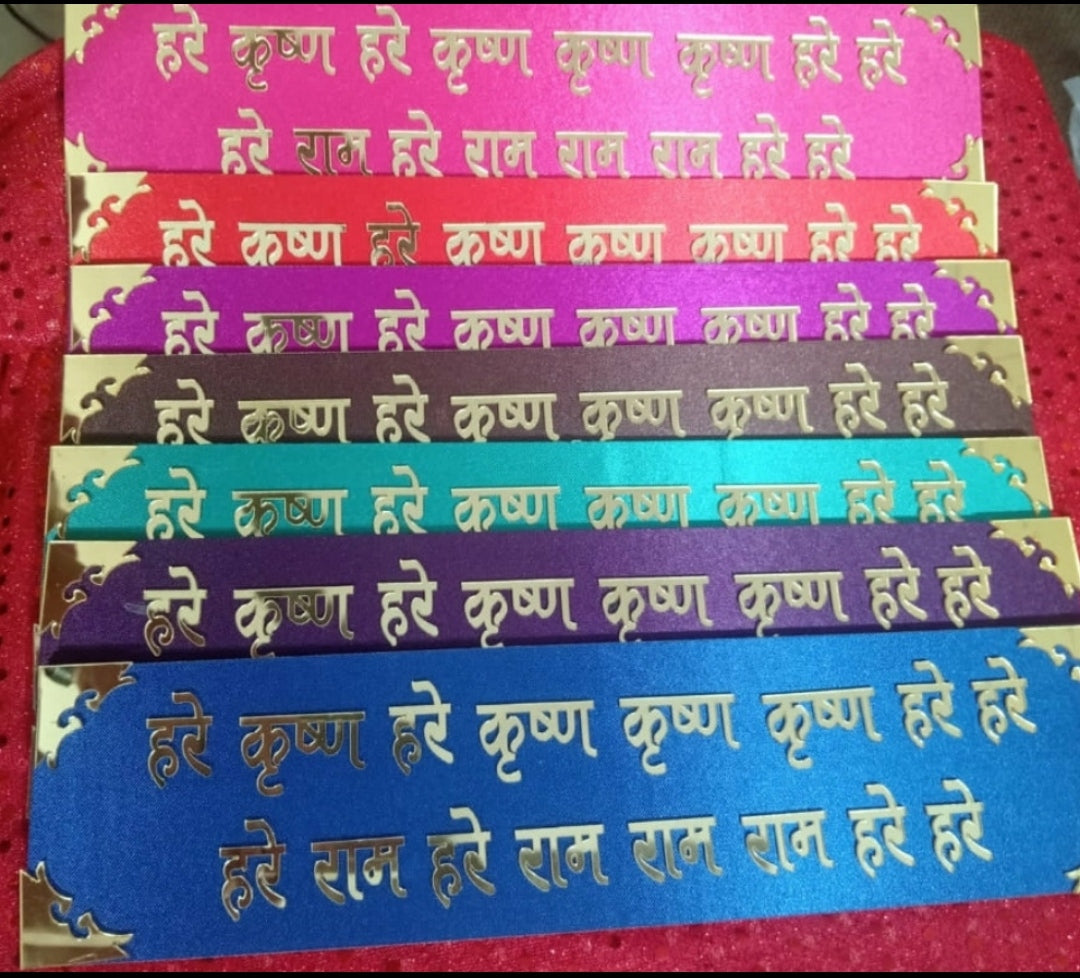 हरे कृष्ण हरे कृष्ण कृष्ण कृष्ण हरे हरे
हरे राम हरे राम राम राम हरे हरे
हरे कृष्ण हरे कृष्ण कृष्ण कृष्ण हरे हरे
हरे कृष्ण हरे कृष्ण कृष्ण कृष्ण हरे हरे
हरे कृष्ण हरे कृष्ण कृष्ण कृष्ण हरे हरे
हरे कृष्ण हरे कृष्ण कृष्ण कृष्ण हरे हरे
हरे कृष्ण हरे कृष्ण कृष्ण कृष्ण हरे हरे
हरे कृष्ण हरे कृष्ण कृष्ण कृष्ण हरे हरे
हरे राम हरे राम राम राम हरे हरे